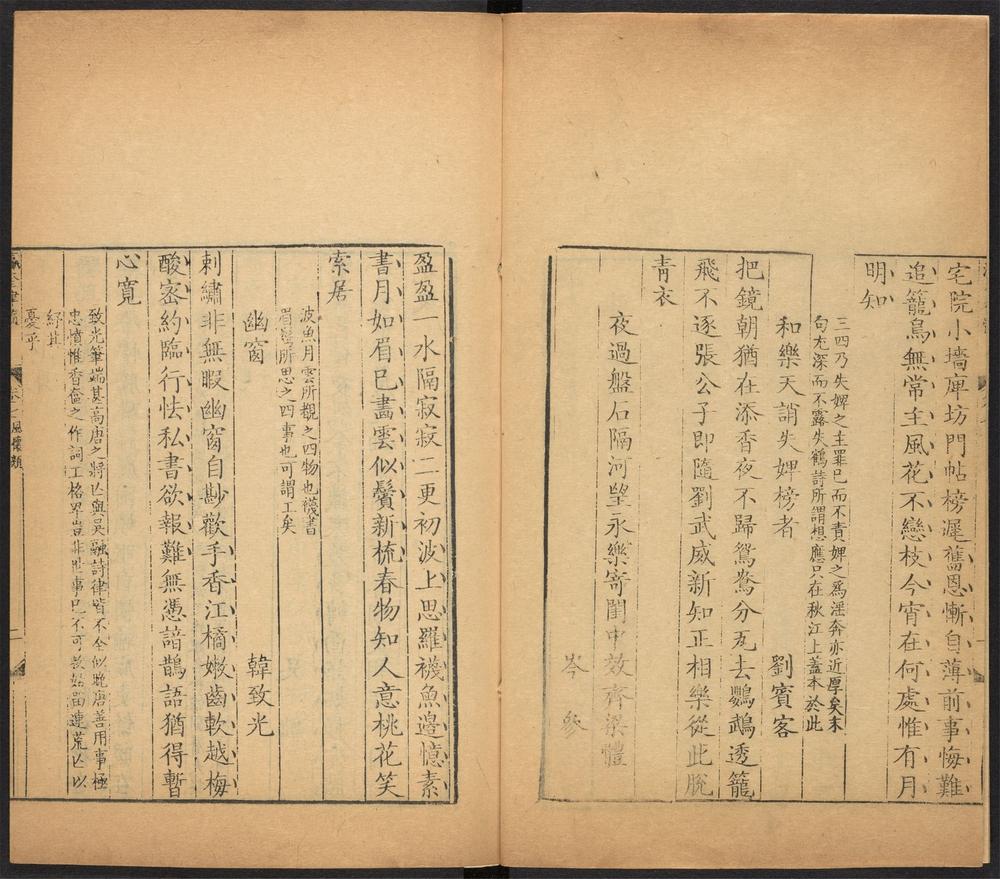 宅院小墻庳坊門帖榜遲舊恩慚自薄前事悔難
追籠鳥無常主風花不戀枝今宵在何處惟有月
明知
三四乃失婢之主罪已而不責婢之爲淫奔亦近厚矣末
句尢深而不露失鶴詩所謂想應只在秋江上蓋本於此
和樂天誚失婢榜者 劉賓客
把鏡朝猶在添香夜不歸鴛鴦分瓦去鸚鵡透籠
飛不逐張公子即隨劉武威新知正相樂從此脫
青衣
夜過盤石隔河望永樂寄閨中效齊梁體
岑參
盈盈一水隔寂寂二更初波上思羅襪魚邊憶素
書月如眉巳畵雲似鬢新梳春物知人意桃花笑
索居
波魚月雲所觀之四物也襪書
眉鬢所思之四事也可謂工矣
幽窗 韓致光
刺繡非無暇幽窗自尠歡手香江橘嫩齒軟越梅
酸宻約臨行怯私書欲報難無憑諳鵲語猶得暫
心寬
致光筆端甚高唐之將亾與吳融詩律皆不全似晚唐善用事極
忠憤惟香奩之作詞工格卑豈非世事已不可救姑畱連荒亾以
紓其
憂乎
卷之 風懷類